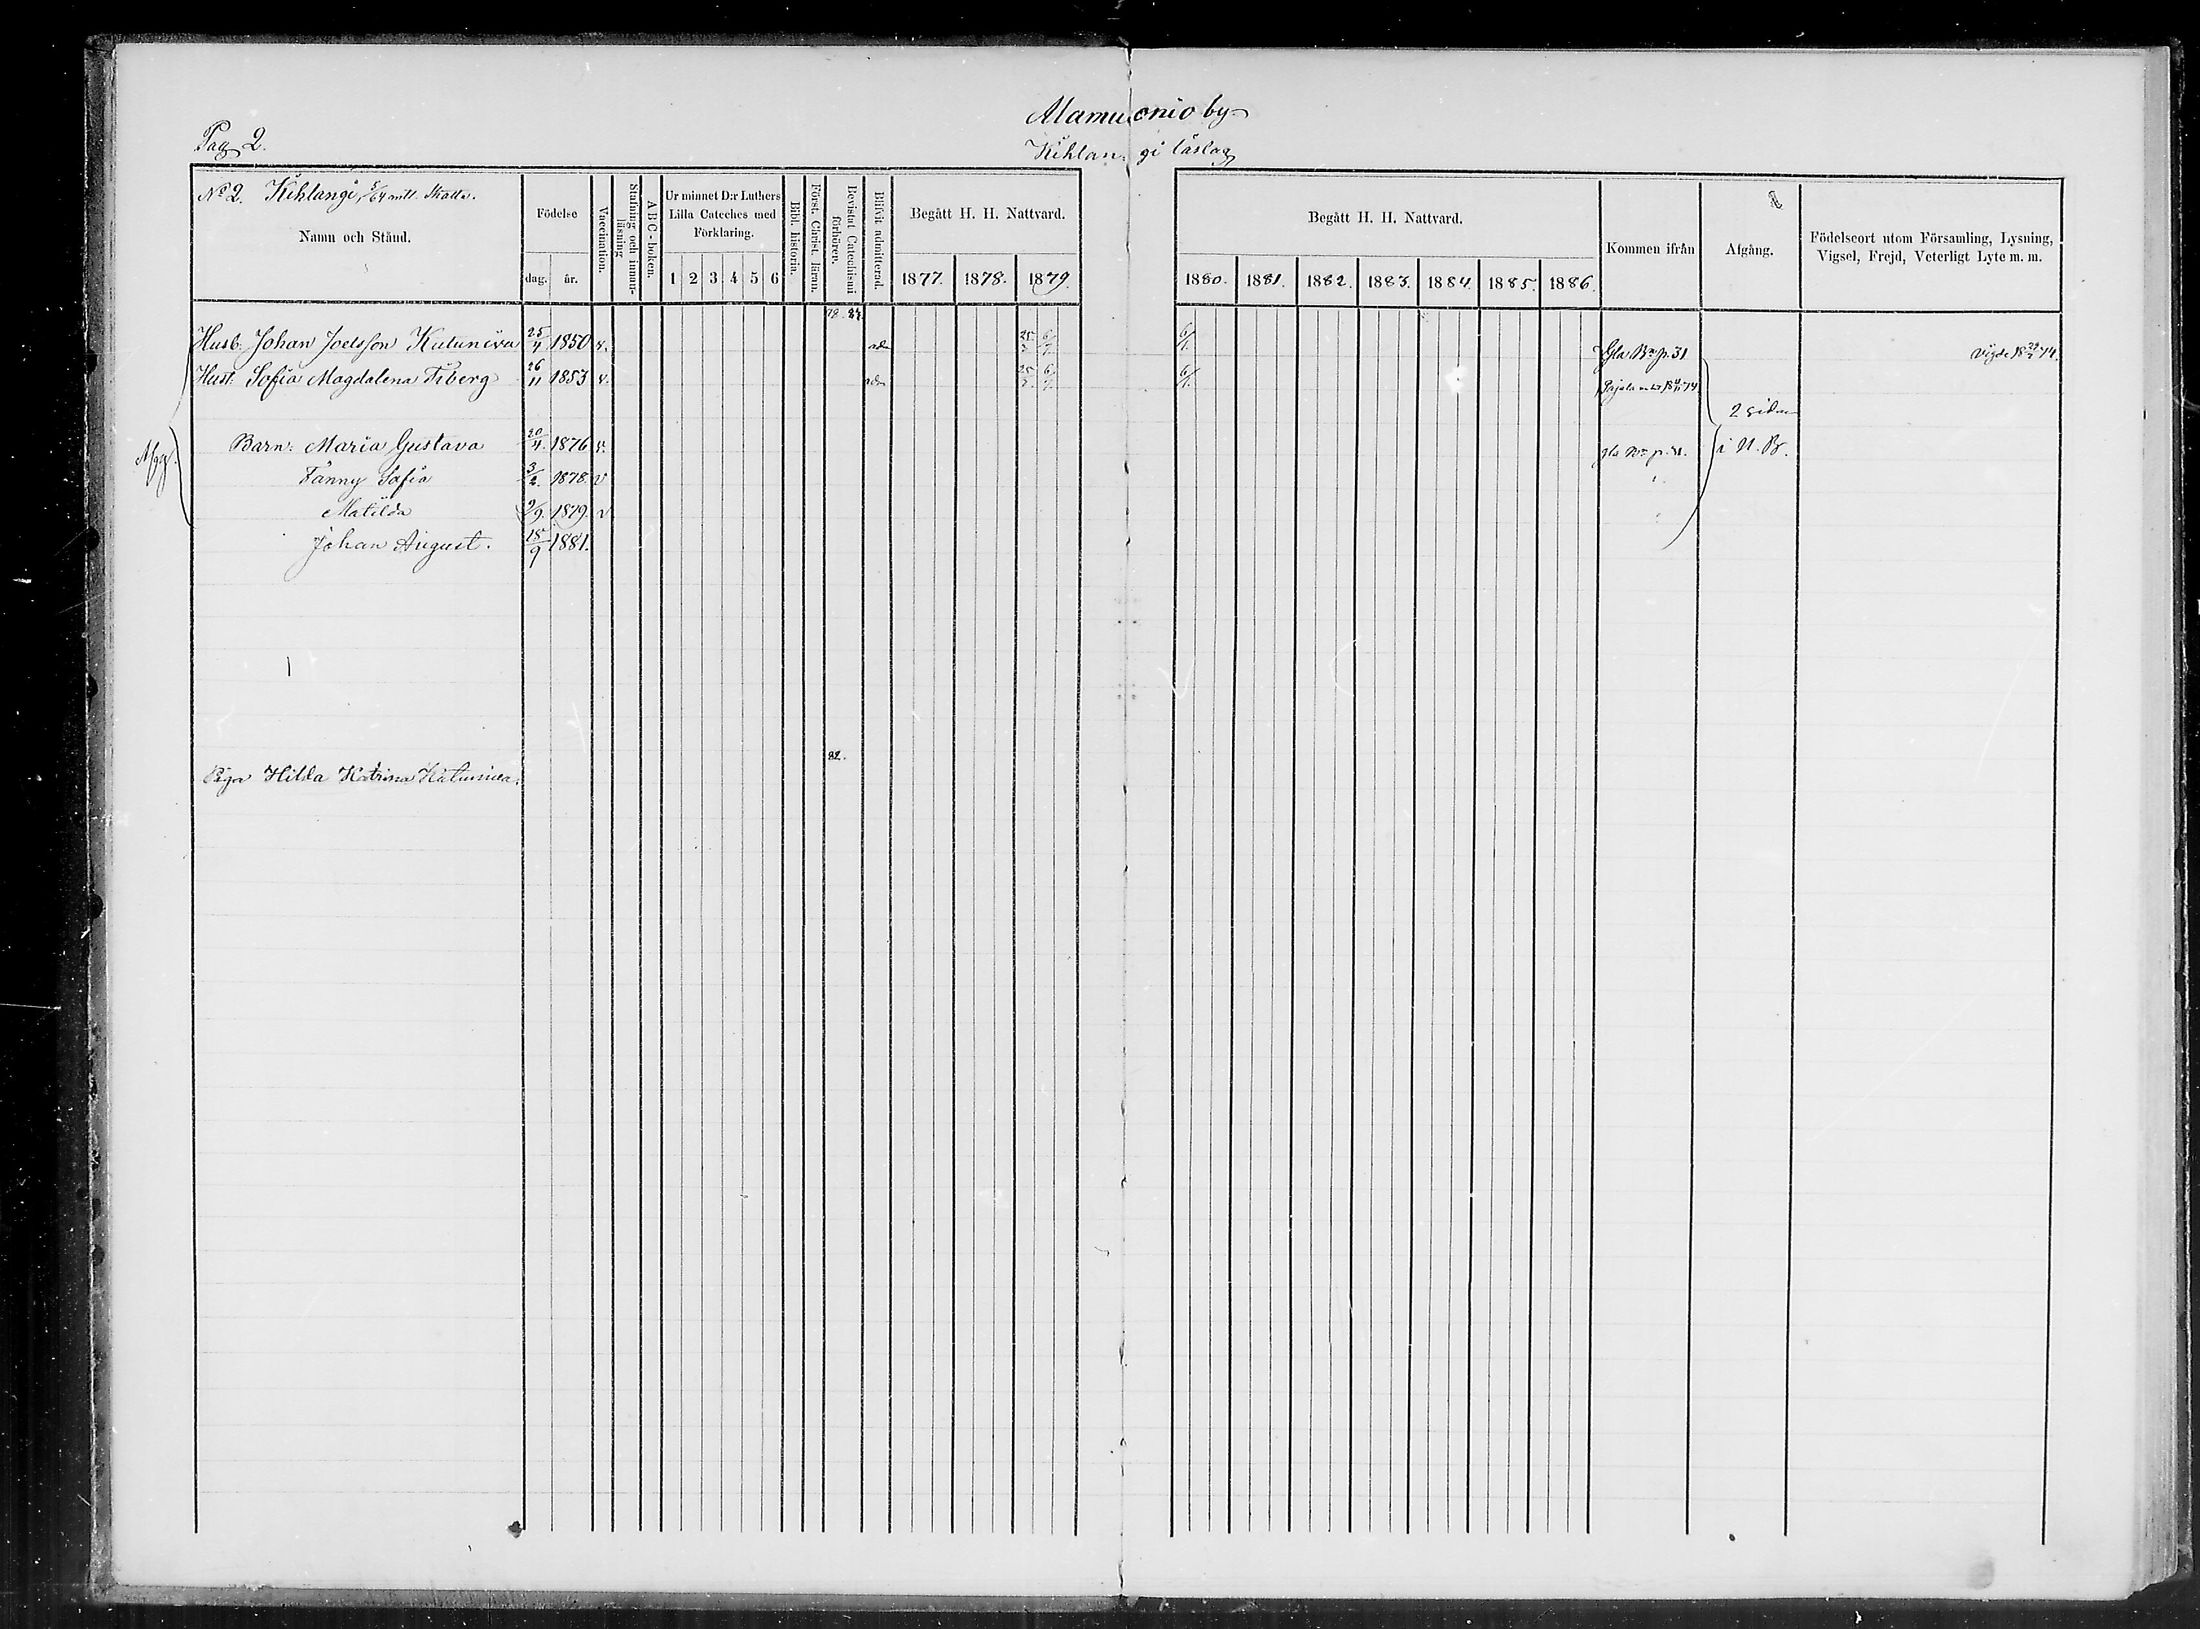 Alamuonio by
Pag 2.
Kihlangi läslag
No 2. Kihlangi, 5/64 mtl. Skatte.
Namn och Stånd.
Födelse
dag. år.
Vaccination.
Stafning och innanläsning
A B C-boken.
Ur minnet D:r Luthers Lilla Cateches med Förklaring.
1 2 3 4 5 6
Bibl. historia.
Först. Christ. läran.
Bevistat Catechismi förhören.
Blifvit admitterad.
Begått H. H. Nattvard.
1877. 1878. 1879.
Begått H. H. Nattvard.
1880. 1881. 1882. 1883. 1884. 1885. 1886.
Kommen ifrån
Afgång.
Födelseort utom Församling, Lysning, Vigsel, Frejd, Veterligt Lyte m. m.
Husb. Johan Joelsson Kutuniva 25/4 1850 v. adm 25/3 6/7. 6/1. Gla Bn p. 31 Vigde 18 29/3 74.
Hust. Sofia Magdalena Friberg 26/11 1853 v. adm 25/3 6/7. 6/1. Pajala
2 sidan
Barn: Maria Gustava 20/4. 1876 v. gla Bn p. 31. i N. B.
Fanny Sofia 3/2. 1878. v
Matilda 9/9. 1879. v
Johan August. 15/9 1881.
82.
Piga Hilda Katrina Kutuniva.